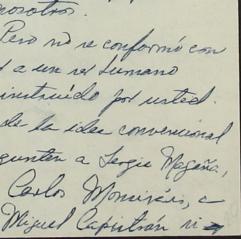 nosotros.
Pero no se conformó con
a un ser humano
instruido por usted.
de la idea convencional
gunten a Sergio Magaña,
Carlos Monsiváis, a
Miguel Capistrán si